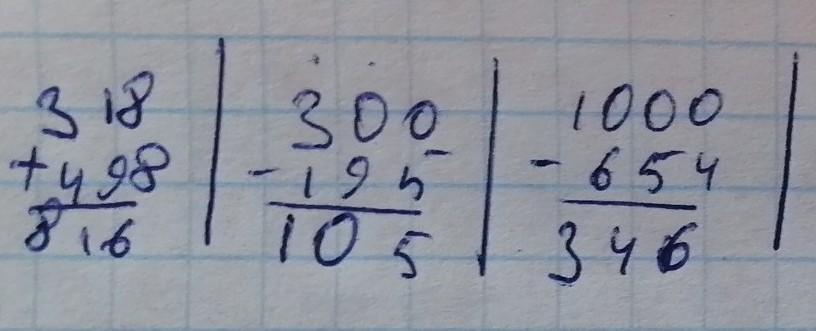 318
+498
816
300
-195
105
1000
-654
346